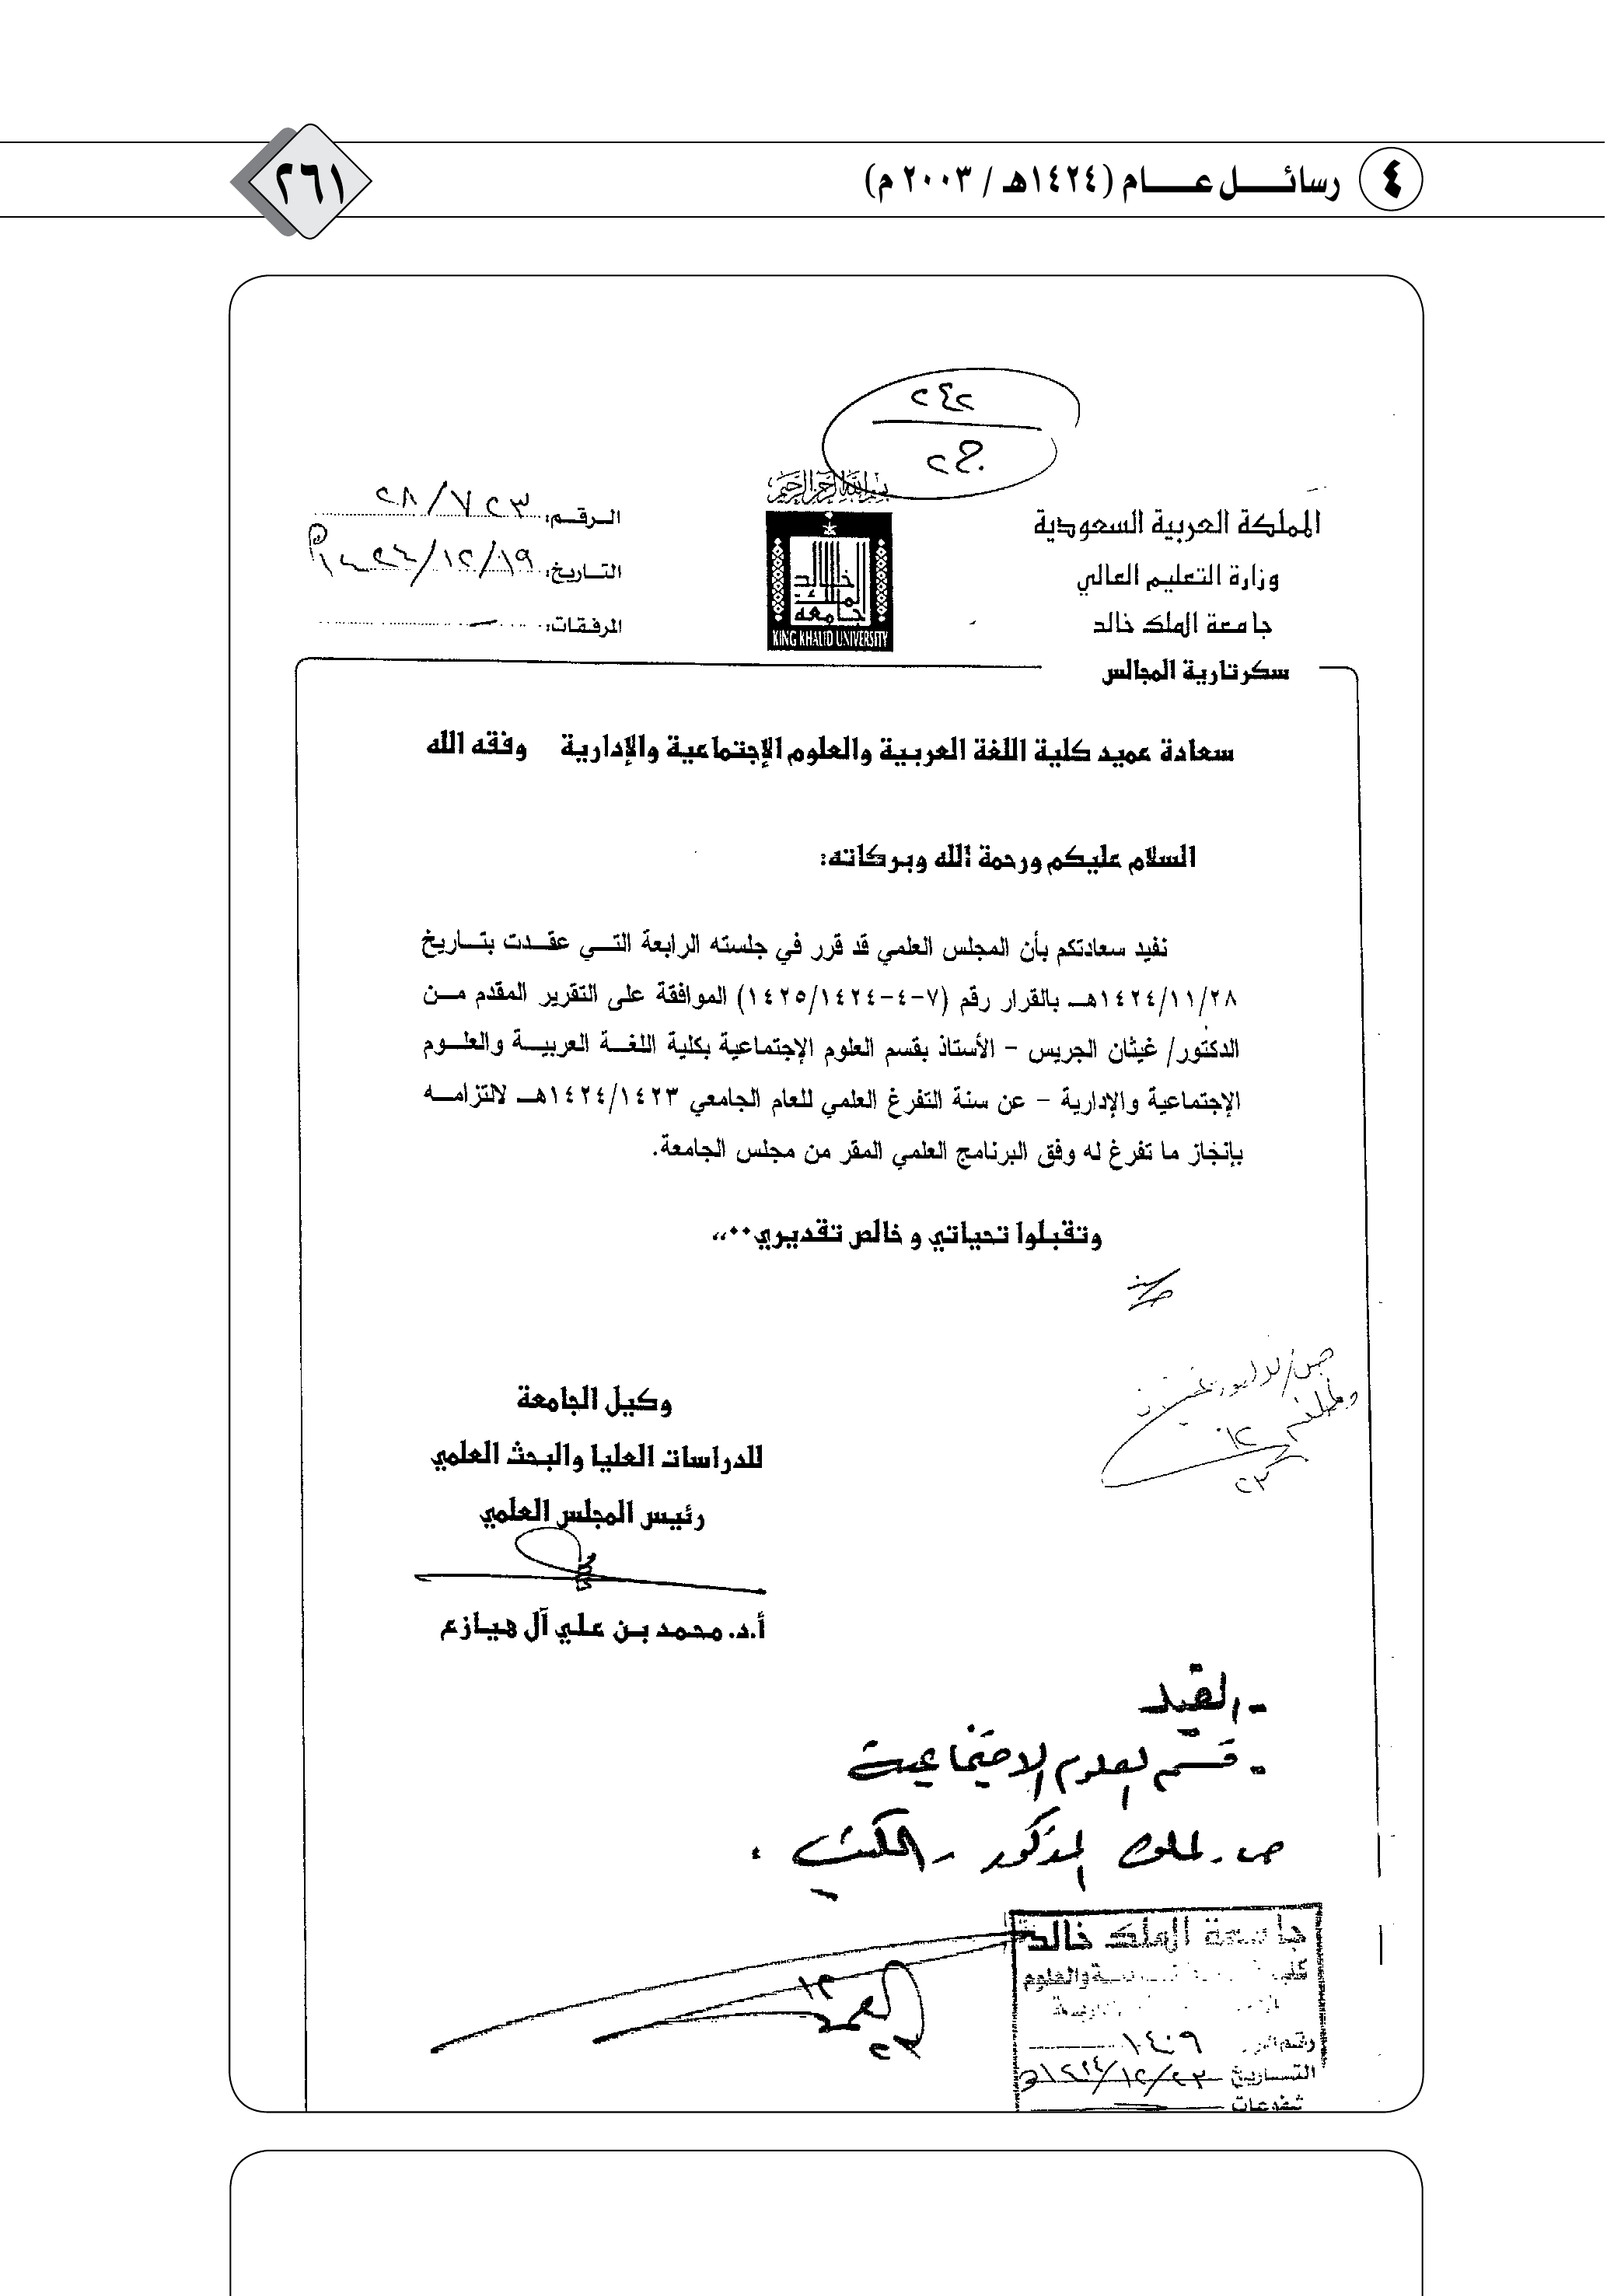 ٤ رسائل عام (١٤٢٤هـ / ٢٠٠٣ م)
٢٦١
٢٤٢
ج٢
بسم الله الرحمن الرحيم
المملكة العربية السعودية
وزارة التعليم العالي
جامعة الملك خالد
سكرتارية المجالس
جامعة الملك خالد
KING KHALID UNIVERSITY
الرقم: ٢٨/٧٢٣
التاريخ: ١٤٢٤/١٢/١٩هـ
المرفقات: ـ
سعادة عميد كلية اللغة العربية والعلوم الإجتماعية والإدارية وفقه الله
السلام عليكم ورحمة الله وبركاته:
نفيد سعادتكم بأن المجلس العلمي قد قرر في جلسته الرابعة التي عقدت بتاريخ
١٤٢٤/١١/٢٨هـ بالقرار رقم (٧-٤-١٤٢٥/١٤٢٤) الموافقة على التقرير المقدم من
الدكتور/ غيثان الجريس - الأستاذ بقسم العلوم الإجتماعية بكلية اللغة العربية والعلوم
الإجتماعية والإدارية - عن سنة التفرغ العلمي للعام الجامعي ١٤٢٤/١٤٢٣هـ لالتزامه
بإنجاز ما تفرغ له وفق البرنامج العلمي المقر من مجلس الجامعة.
وتقبلوا تحياتي و خالص تقديري٠٠،،
وكيل الجامعة
للدراسات العليا والبحث العلمي
رئيس المجلس العلمي
أ.د. محمد بن علي آل هيازع
- القيد
- قسم العلوم الاجتماعية
ص. لملف المذكور
جامعة الملك خالد
والعلوم
١٤٠٩
التاريخ ١٤٢٤/١٢/٢٣هـ